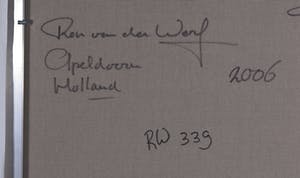 Ron van der Werf
Apeldoorn
Holland
2006
RW 339